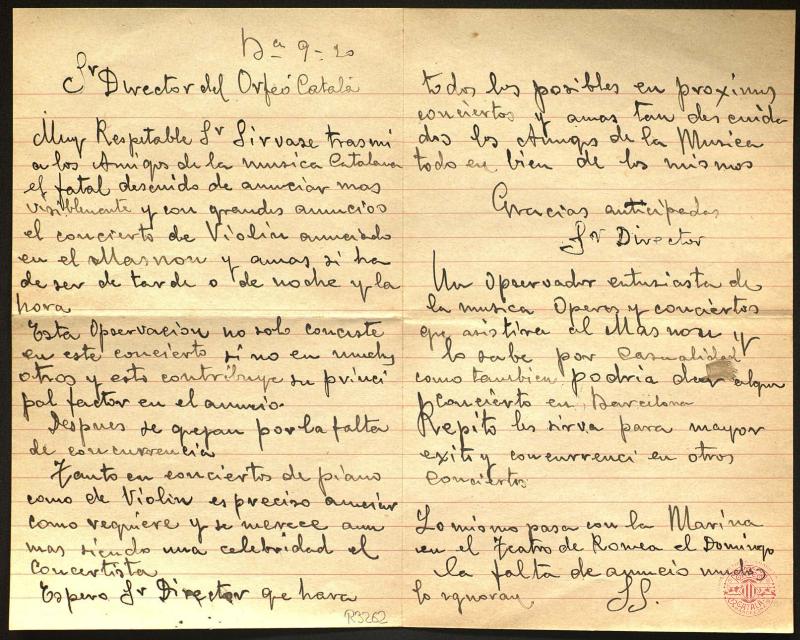 Bna 9-20
Sr Director del Orfeó Catalá
Muy Respetable Sr Sirvase trasmi
a los Amigos de la musica Catalana
el fatal descuido de anunciar mas
visiblemente y con grandes anuncios
el concierto de Violin anunciado
en el Masnon y amas si ha
de ser de tarde o de noche y la
hora
Esta Opservacion no solo conciste
en este concierto si no en muchos
otros y esto contribuye su princi
pal factor en el anuncio.
Despues se quejan por la falta
de concurrencia
Tanto en conciertos de piano
como de Violin es preciso anunciar
como requiere y se merece aun
mas siendo una celebridad el
Concertista
Espero Sr Director qe hara
todos los posibles en proximos
conciertos y amas tan descuida
dos los Amigos de la Musica
todo en bien de los mismos
Gracias anticipedas
Sr Director
Un Opservador entusiasta de
la musica Operas y conciertos
que asistira al Masnon y
lo sabe por casualidad
como tambien podria dar algun
concierto en Barcelona
Repito les sirva para mayor
exito y concurrenci en otros
Conciertos
Lo mismo pasa con la Marina
en el Teatro de Romea el Domingo
la falta de anuncio muchos
lo ygnoran SS.
R3262